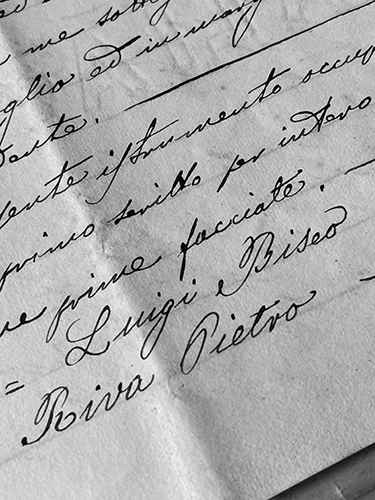 me sotto
foglio ed in marg
dente.
dente istrumento occup
primo scritto per intero
ue prime facciate.
Luigi Biseo
= Riva Pietro